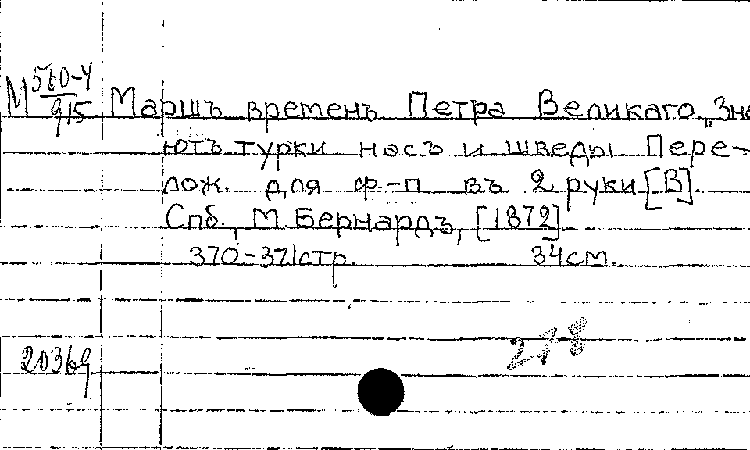 М 560-4/915
Маршъ временъ Петра Великаго „Зна
ютъ турки насъ и шведы Пере-
лож. для ф-п въ 2 руки [В].
Спб., М. Бернардъ, [1872]
370-371стр. 34см.
278
20369